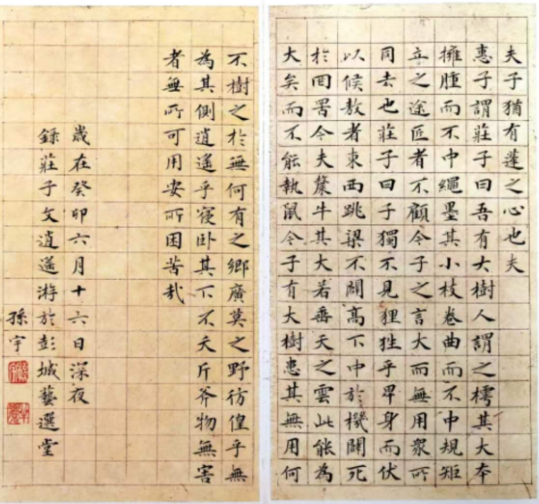 夫子猶有蓬之心也夫
惠子謂莊子曰吾有大樹人謂之樗其大本
擁腫而不中繩墨其小枝卷曲而不中規矩
立之途匠者不顧今子之言大而無用眾所
同去也莊子曰子獨不見狸狌乎卑身而伏
以候敖者東西跳梁不闢高下中於機闢死
於罔罟今夫斄牛其大若垂天之雲此能為
大矣而不能執鼠今子有大樹患其無用何
不樹之於無何有之鄉廣莫之野彷徨乎無
為其側逍遙乎寢臥其下不夭斤斧物無害
者無所可用安所困苦哉
歲在癸卯六月十六日深夜
錄莊子文逍遙游於彭城藝選堂
孫宇